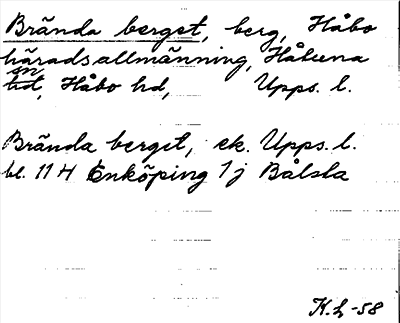 Brända berget, berg, Håbo
häradsallmänning, Håtuna
sn
hd, Håbo hd, Upps. l.
Brända berget, ek. Upps. l.
bl. 114 Enköping 7j Bålsta
K.L-58